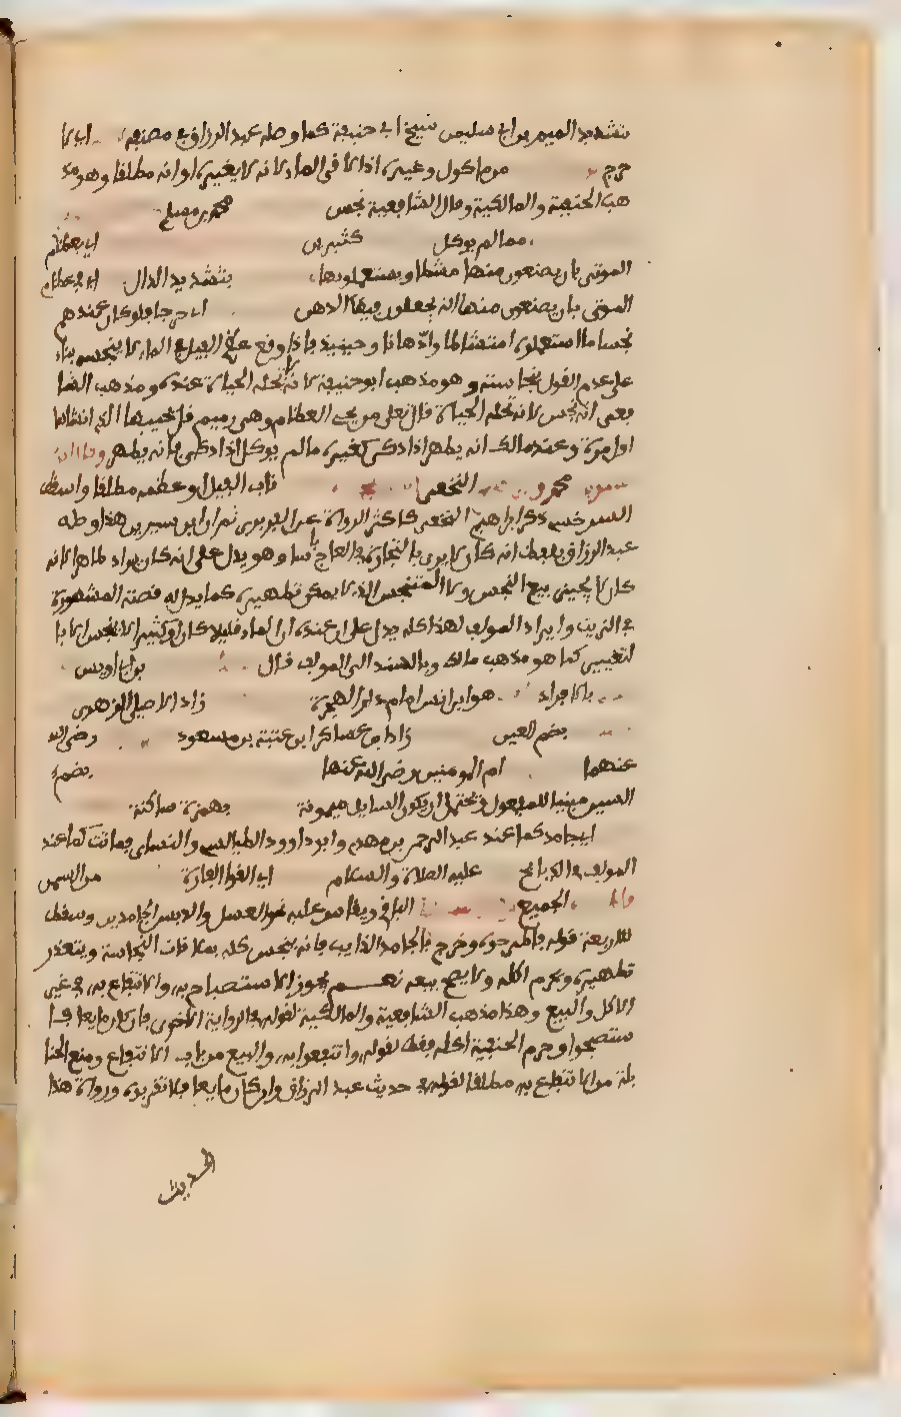 بتشديد الميم بن ابي سليمن شيخ ابي حنيفة كما وصله عبد الرزاق في مصنفه اي لا
حرج من ماكول وغيره اذا لاقى الماء لانه لا يغيره او انه مطلقا وهو مذ
هب الحنفية والمالكية وقال الشافعية نجس محمد بن مسلم
مما لم يوكل كثيرين اي بعظام
الموتى بان يصنعون منها مشطا ويستعملونها بتشديد الدال اي في عظام
الموتى بان يصنعون منها انه يجعلون فيها الدهن اي حرجا فلو كان عندهم
نجسا ما استعملوه امتشاطا وادهانا وحينيذ فاذا وقع عظم الفيل في الماء لا ينجسه بناء
على عدم القول بنجاسته وهو مذهب ابو حنيفة لانه لا تحله الحياة عنده ومذهب الشا
فعي انه نجس لانه تحله الحياة قال تعلى من يحي العظام وهي رميم قل يحييها الذي انشاها
اول مرة وعند مالك انه يطهر اذا ذكى كغيره مما لم يوكل اذا ذكى فانه يطهر وقال ابن
سيرين محمد النخعي ناب الفيل او عظمه مطلقا واسقط
السرخسي ذكر ابراهيم النخعي كاكثر الرواة عن الفربري ثم اثر ابن سيرين هذا وصله
عبد الرزاق بلفظ انه كان لا يرى بالتجارة في العاج باسا وهو يدل على انه كان يراه طاهرا لانه
كان لا يجيز بيع النجس ولا المتنجس الذي لا يمكن تطهيره كما يدل له قصته المشهورة
في الزيت وايراد المولف لهذا كله يدل على ان عنده ان الماء قليلا كان او كثيرا لا ينجس الا با
لتغيير كما هو مذهب مالك وبالسند الى المولف قال بن ابي اويس
بالافراد هو ابن انس امام دار الهجرة زاد الاصيلي الزهري
بضم العين زاد ابن عساكر ابن عتبة بن مسعود رضي الله
عنهما ام المومنين رضي الله عنها بضم
السين مبنيا للمفعول ويحتمل ان يكون السايل ميمونة بهمزة ساكنة
اي جامد كما عند عبد الرحمن بن مهدي وابو داوود الطيالسي والنساي فماتت كما عند
المولف في الذبايح عليه الصلاة والسلام اي القوا الفارة من السمن
فال الجميع الباقي ويقاس عليه نحو العسل والدبس الجامدين وسقط
للاربعة قوله فاطرحوه وخرج بالجامد الذايب فانه ينجس كله بملاقات النجاسة ويتعذر
تطهيره ويحرم اكله ولا يصح بيعه نعم يجوز الاستصباح به والانتفاع به في غير
الاكل والبيع وهذا مذهب الشافعية والمالكية لقوله في الرواية الاخرى فان كان مايعا فا
ستصبحوا وحرم الحنفية اكله فقط لقوله وانتفعوا به والبيع من باب الانتفاع ومنع الحنا
بلة من الانتفاع به مطلقا لقوله في حديث عبد الرزاق وان كان مايعا فلا تقربوه ورواة هذا
الحديث